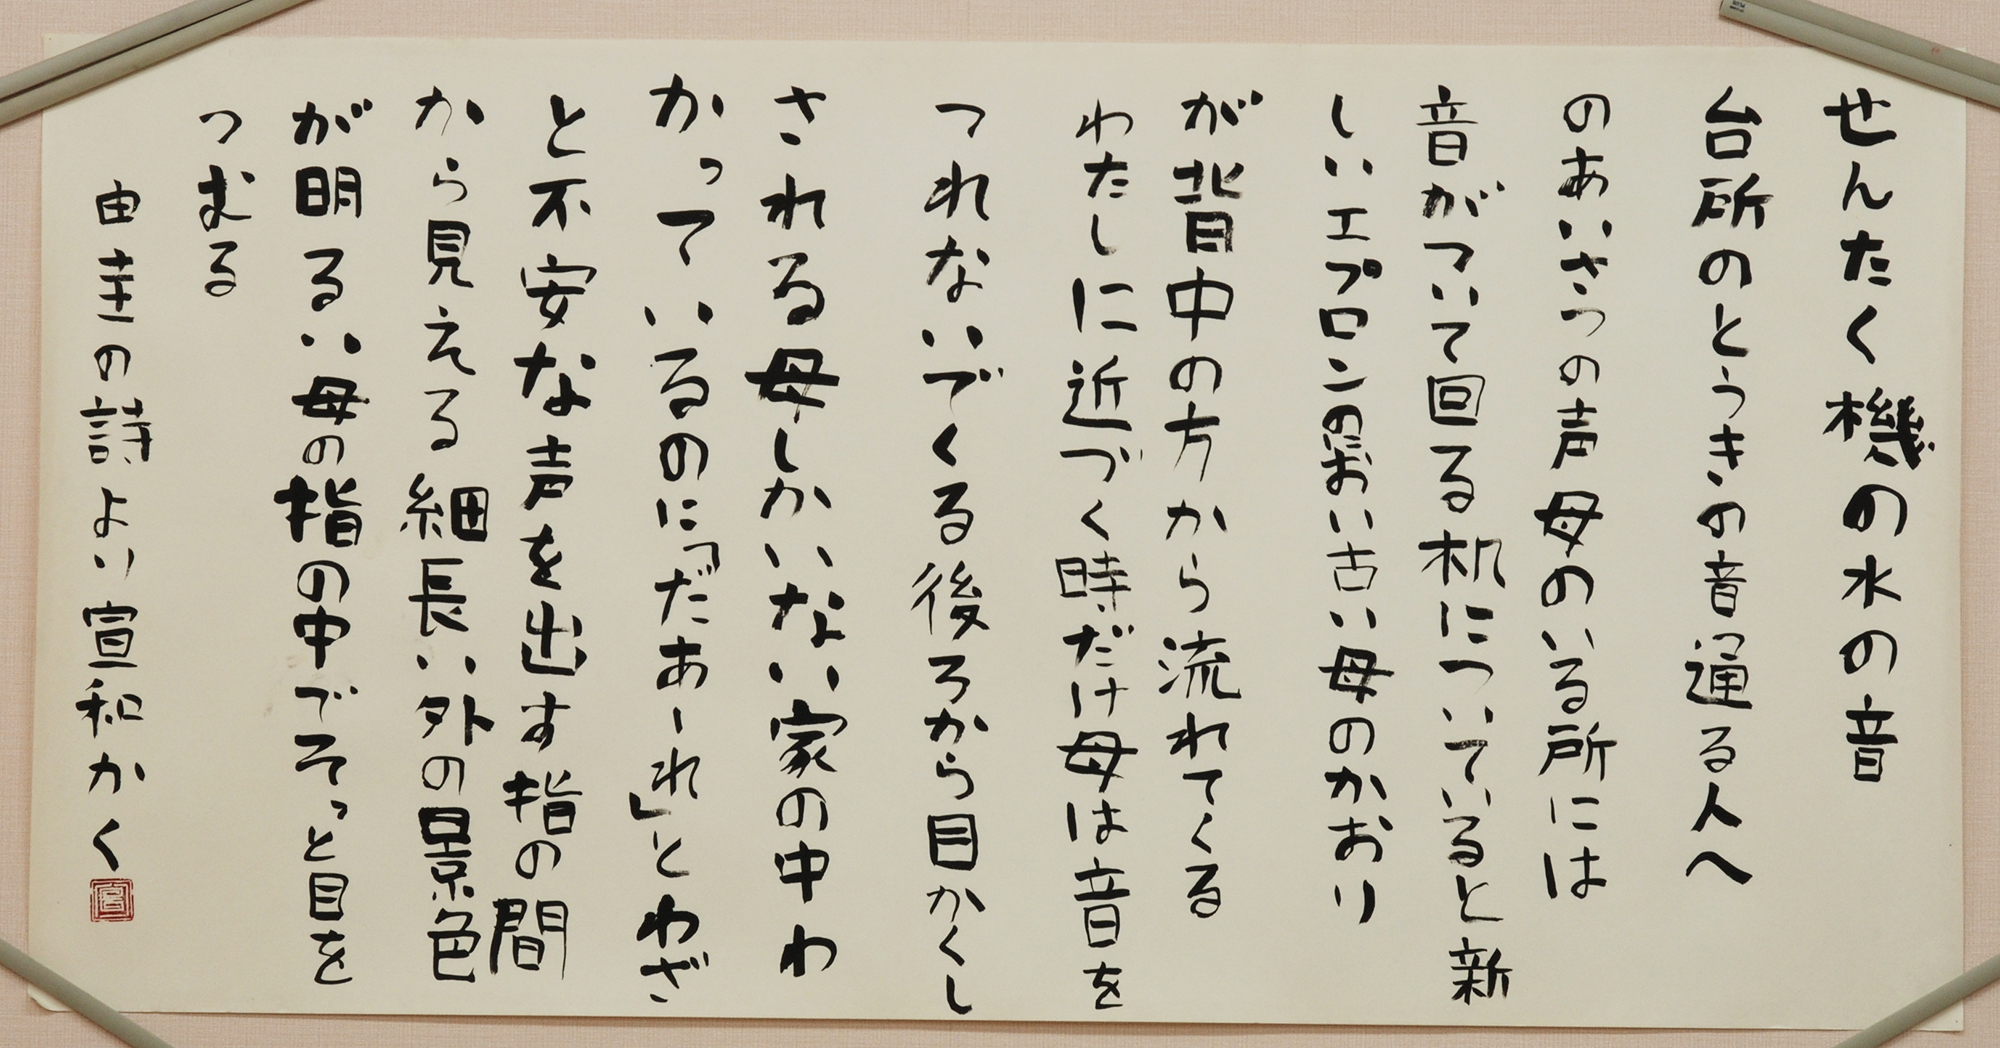 せんたく機の水の音
台所のとうきの音通る人へ
のあいさつの声母のいる所には
音がついて回る机についていると新
しいエプロンのにおい古い母のかおり
が背中の方から流れてくる
わたしに近づく時だけ母は音を
つれないでくる後ろから目かくし
される母しかいない家の中わ
かっているのに「だあーれ」とわざ
と不安な声を出す指の間
から見える細長い外の景色
が明るい母の指の中でそっと目を
つむる
由圭の詩よい宣和かく